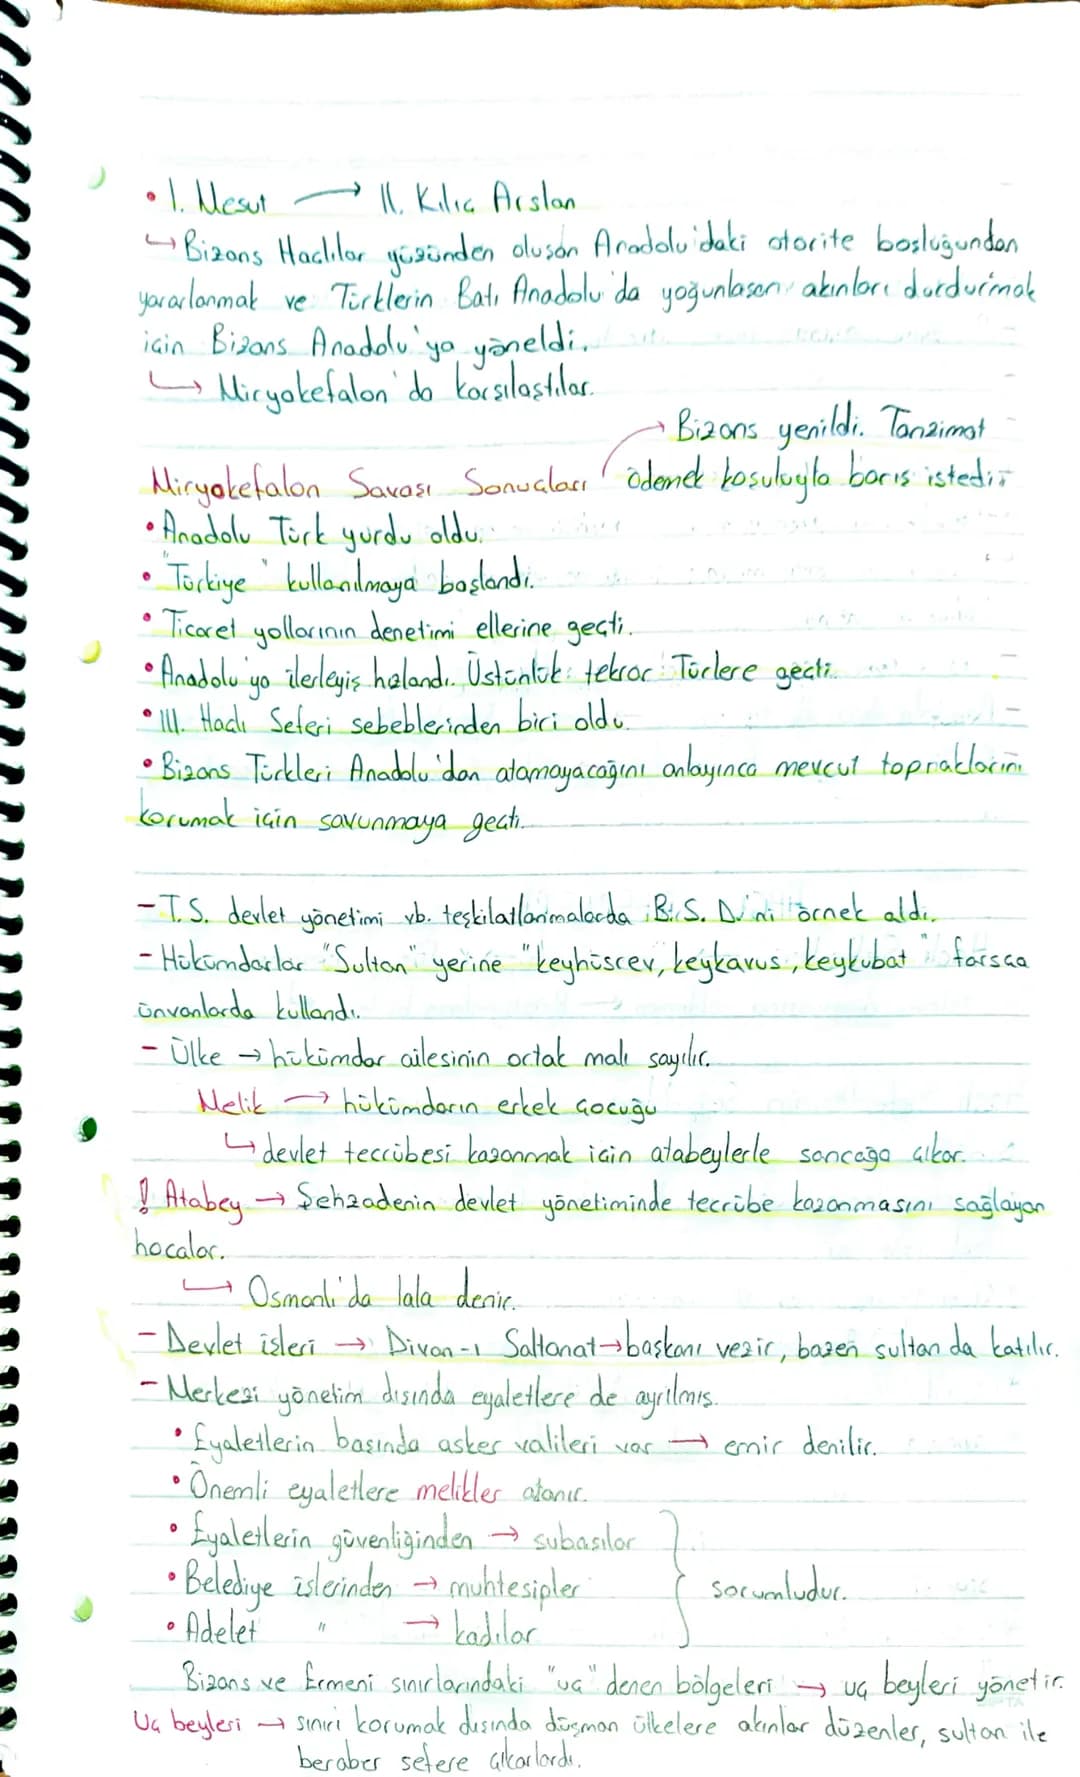 • I. Mesut → II. Kılıç Arslan
↳ Bizans Haçlılar yüzünden oluşan Anadolu'daki otorite boşluğundan
yararlanmak ve Türklerin Batı Anadolu'da yoğunlaşan akınları durdurmak
için Bizans Anadolu'ya yöneldi.
↳ Miryokefalon'da karşılaştılar.
→ Bizans yenildi. Tanzimat
Miryokefalon Savaşı Sonuçları ödemek koşuluyla barış istedi.
• Anadolu Türk yurdu oldu.
• "Türkiye" kullanılmaya başlandı.
• Ticaret yollarının denetimi ellerine geçti.
• Anadolu'ya ilerleyiş hızlandı. Üstünlük tekrar Türlere geçti.
• III. Haçlı Seferi sebeblerinden biri oldu.
• Bizans Türkleri Anadolu'dan atamayacağını anlayınca mevcut topraklarını
korumak için savunmaya geçti.
- T.S. devlet yönetimi vb. teşkilatlanmalarda B.S.D.'ni örnek aldı.
- Hükümdarlar "Sultan" yerine "keyhüsrev, keykavus, keykubat" farsça
ünvanlarda kullandı.
- Ülke → hükümdar ailesinin ortak malı sayılır.
Melik → hükümdarın erkek çocuğu
↳ devlet teccübesi kazanmak için atabeylerle sancağa çıkar.
! Atabey → Şehzadenin devlet yönetiminde tecrübe kazanmasını sağlayan
hocalar.
↳ Osmanlı'da lala denir.
- Devlet işleri → Divan-ı Saltanat → başkanı vezir, bazen sultan da katılır.
- Merkezi yönetim dışında eyaletlere de ayrılmış.
• Eyaletlerin başında asker valileri var → emir denilir.
• Önemli eyaletlere melikler atanır.
• Eyaletlerin güvenliğinden → subaşılar
• Belediye işlerinden → muhtesipler } sorumludur.
• Adelet " → kadılar
Bizans ve Ermeni sınırlarındaki "uç" denen bölgeleri → uç beyleri yönetir.
Uç beyleri → sınırı korumak dışında düşman ülkelere akınlar düzenler, sultan ile
beraber sefere çıkarlardı.